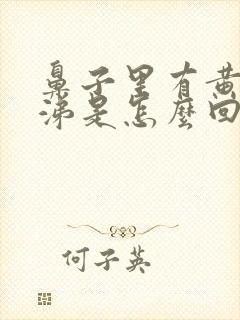 鼻子里有黄
涕是怎麼回
何子英